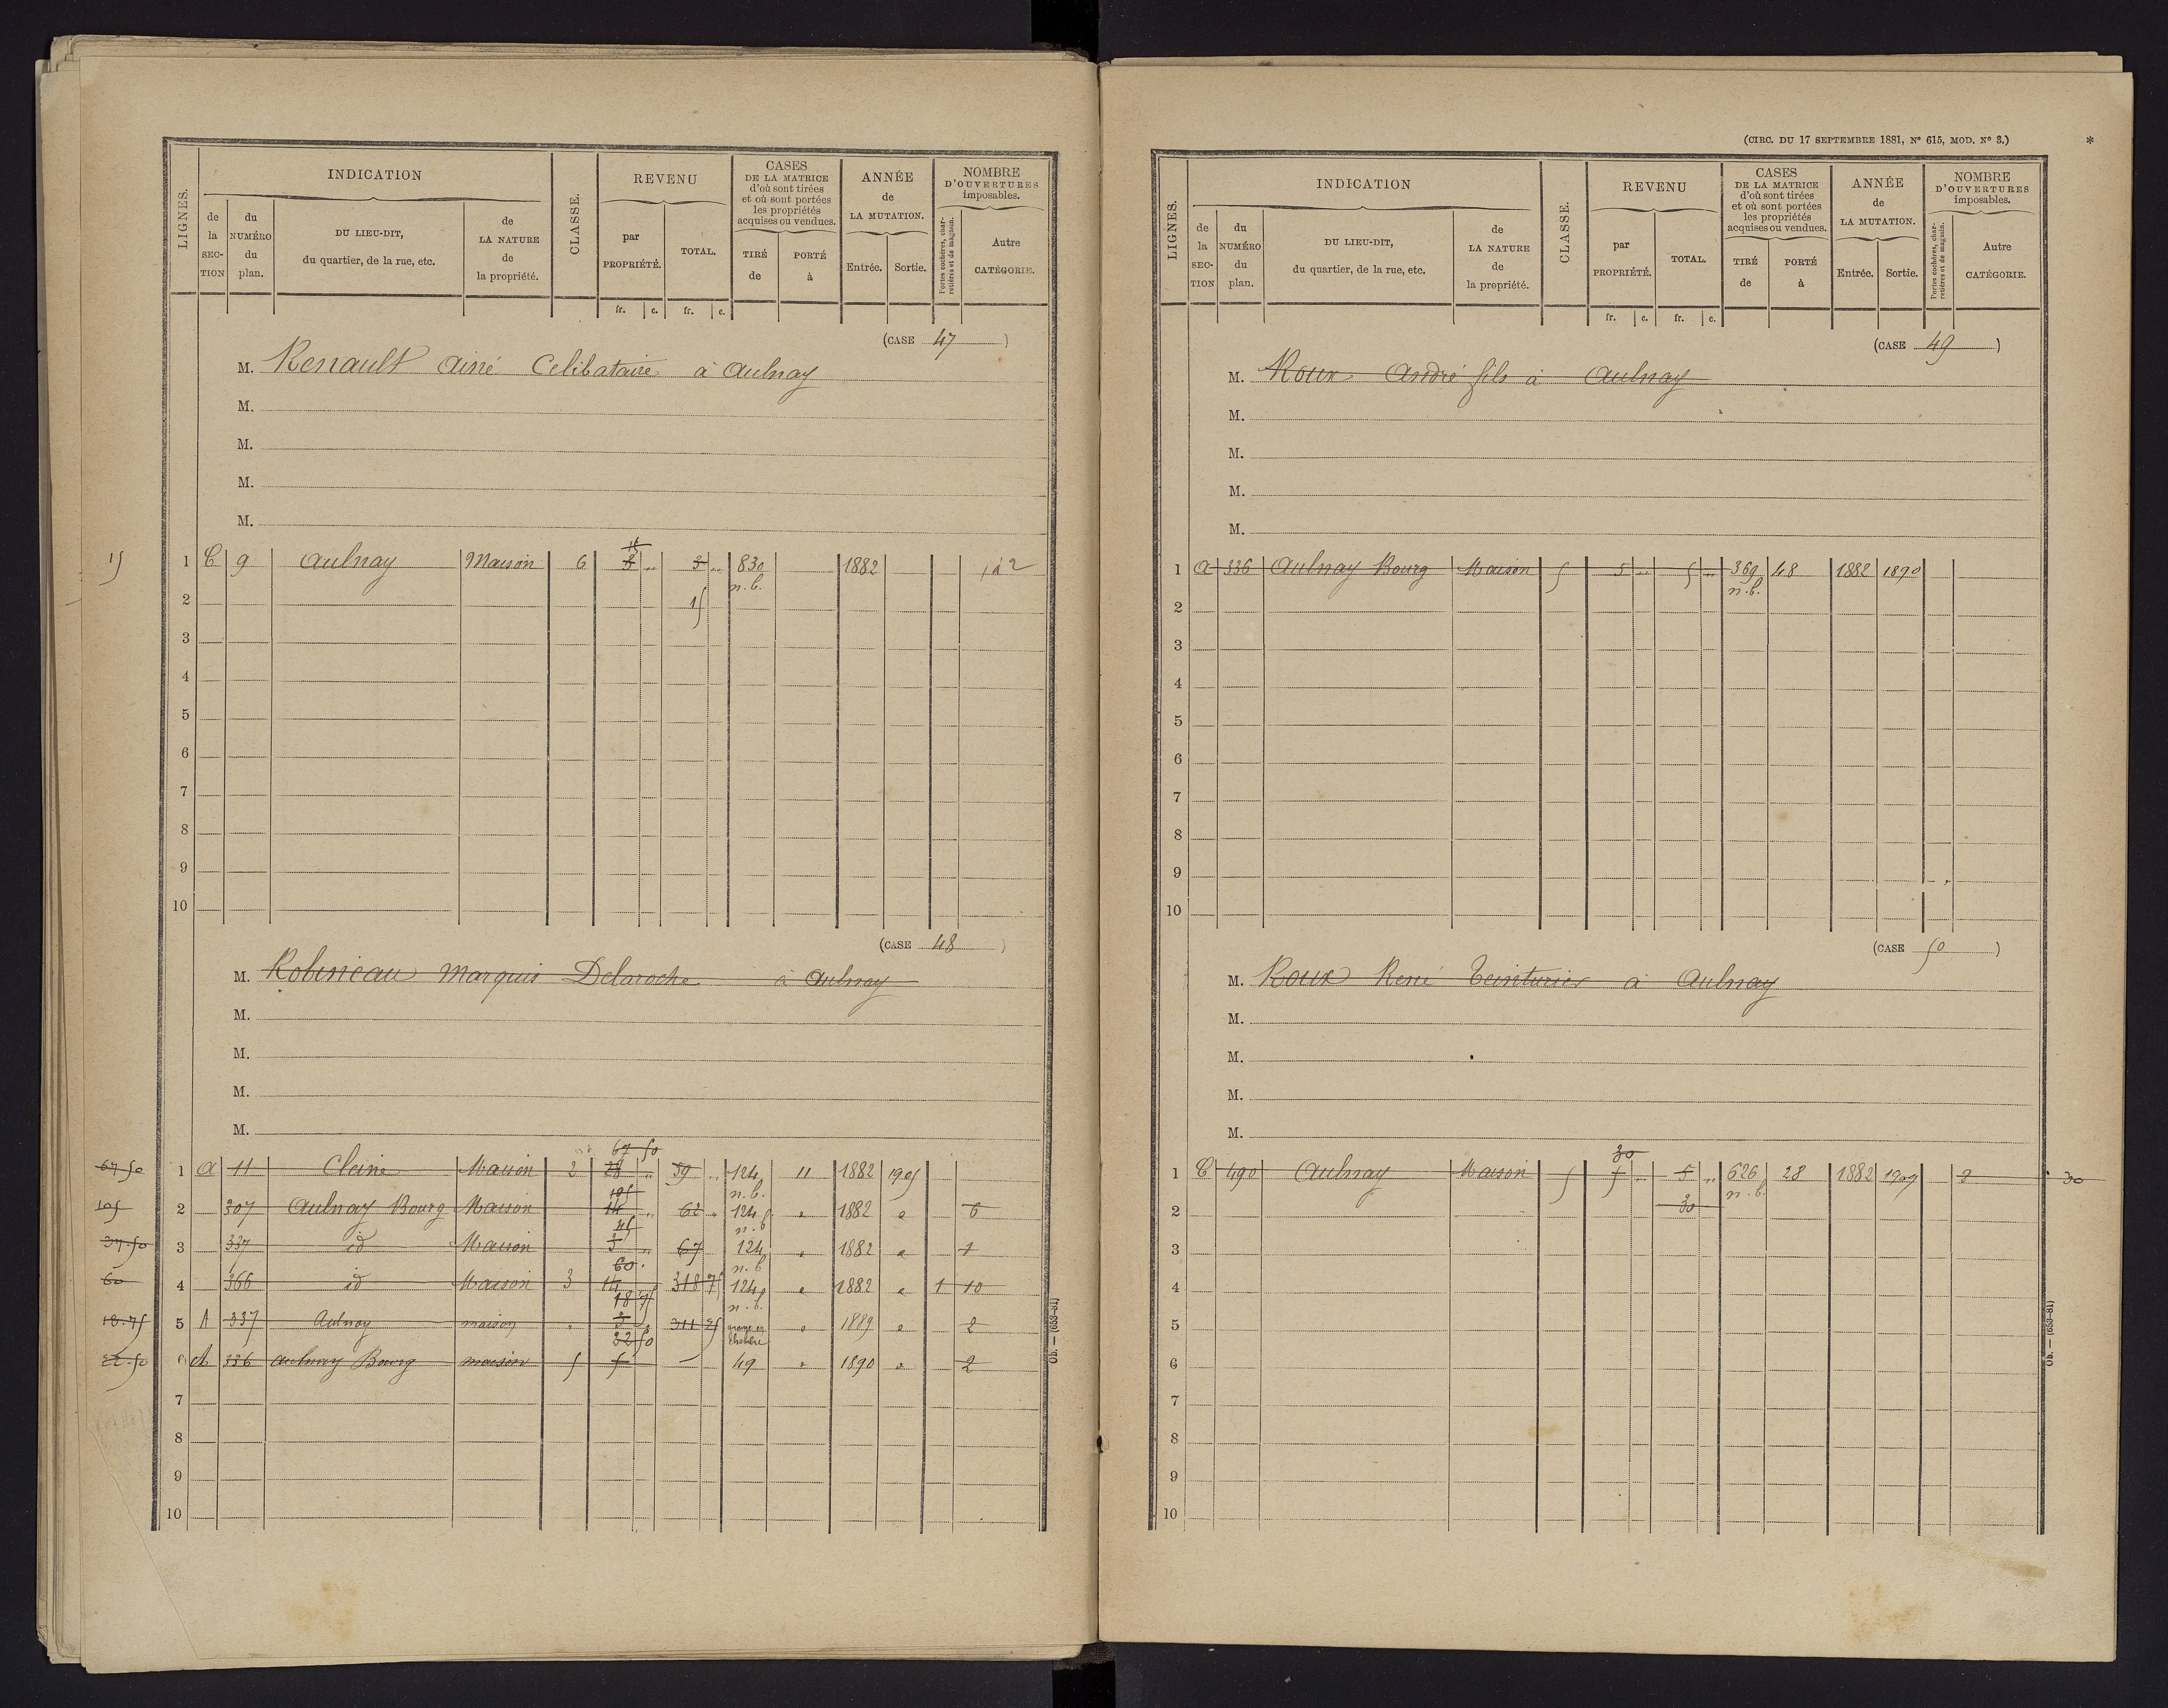 LIGNES.
INDICATION
de la SECTION
du NUMÉRO du plan.
DU LIEU-DIT, du quartier, de la rue, etc.
de LA NATURE de la propriété.
CLASSE.
REVENU
par PROPRIÉTÉ.
TOTAL.
fr. c. fr. c.
CASES DE LA MATRICE d'où sont tirées et où sont portées les propriétés acquises ou vendues.
TIRÉ de
PORTÉ à
ANNÉE de LA MUTATION.
Entrée. Sortie.
NOMBRE D'OUVERTURES imposables.
Portes cochères, charretières et de magasin.
Autre CATÉGORIE.
(CASE 47)
M. Renault ainé Celibataire à Aulnay
M.
M.
M.
M.
15
15
1 C 9 Aulnay Maison 6 3 " 3 " 830 1882 2
n.b.
2 15
3
4
5
6
7
8
9
10
(CASE 48)
M. Robineau Marquis Delaroche à Aulnay
M.
M.
M.
M.
67 50
67.50 1 a 11 Maison 2 " 59 " 124 11 1882 1905
105 n.b.
105 2 307 Aulnay Bourg Maison 14 " 62 " 124 " 1882 " 6
n.b
37.50 3 337 id Maison 3 " 67 124 " 1882 " 1
60 n.b
60 4 366 id Maison 3 14 318 75 124 " 1882 " 1 10
18 75 n.b.
18.75 5 A 337 Aulnay maison " 3 " 311 25 grange en chambre " 1889 " 2
22 50
22.50 6 A 336 Aulnay Bourg maison 5 5 49 " 1890 " 2
7
8
9
10
Ob. — (653-81)
(CIRC. DU 17 SEPTEMBRE 1881, N° 615, MOD. N° 3.)
*
LIGNES.
INDICATION
de la SECTION
du NUMÉRO du plan.
DU LIEU-DIT, du quartier, de la rue, etc.
de LA NATURE de la propriété.
CLASSE.
REVENU
par PROPRIÉTÉ.
TOTAL.
fr. c. fr. c.
CASES DE LA MATRICE d'où sont tirées et où sont portées les propriétés acquises ou vendues.
TIRÉ de
PORTÉ à
ANNÉE de LA MUTATION.
Entrée. Sortie.
NOMBRE D'OUVERTURES imposables.
Portes cochères, charretières et de magasin.
Autre CATÉGORIE.
(CASE 49)
M. Roux André fils à Aulnay
M.
M.
M.
M.
1 a 336 Aulnay Bourg Maison 5 5 " 5 " 369 48 1882 1890
n.b.
2
3
4
5
6
7
8
9
10
(CASE 50)
M. Roux René teinturier à Aulnay
M.
M.
M.
M.
30
1 C 490 Aulnay Maison 5 5 " 5 " 626 28 1882 1909 2 30
n.b.
2 30
3
4
5
6
7
8
9
10
Ob. — (653-81)